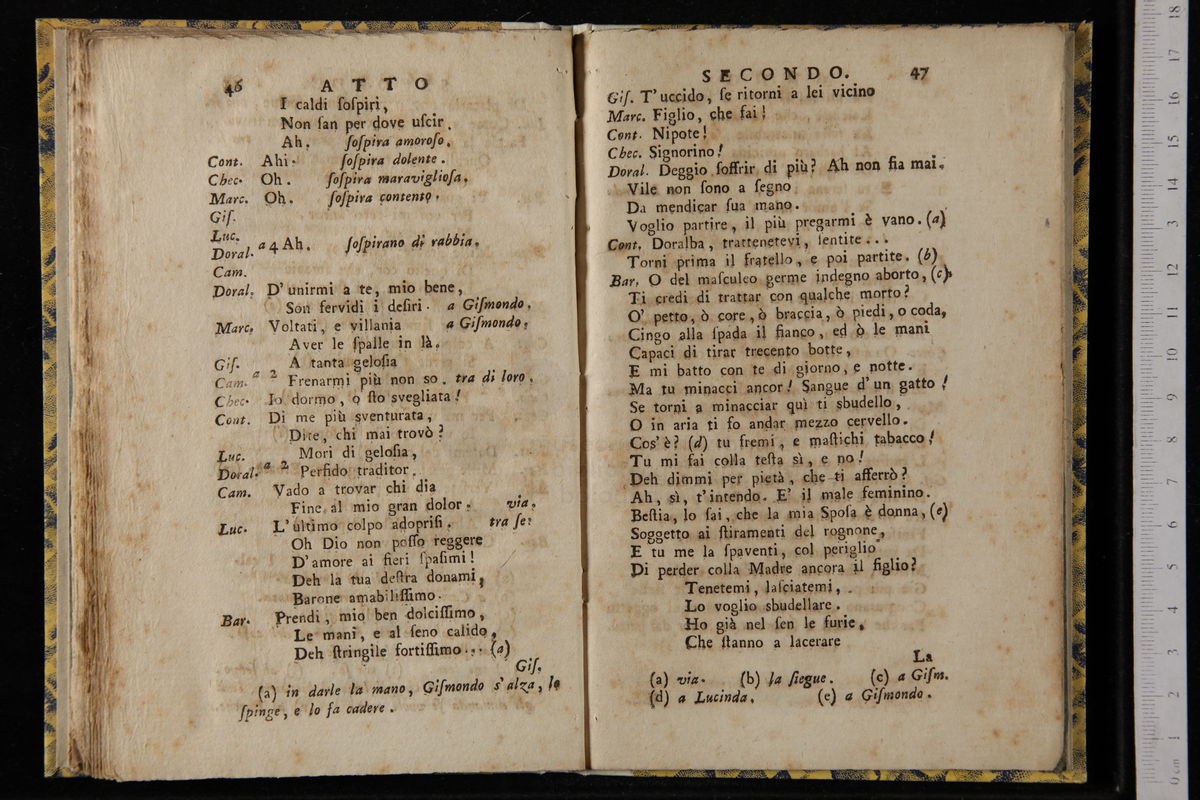 46 ATTO
I caldi ſoſpiri,
Non ſan per dove uſcir.
Ah. ſoſpira amoroſo.
Cont. Ahi. ſoſpira dolente.
Chec. Oh. ſoſpira maraviglioſa.
Marc. Oh. ſoſpira contento.
Giſ.
Luc.
Doral. a 4 Ah. ſoſpirano di rabbia.
Cam.
Doral. D'unirmi a te, mio bene,
Son fervidi i deſiri. a Giſmondo.
Marc. Voltati, e villania a Giſmondo.
Aver le ſpalle in là.
Giſ. A tanta geloſia
Cam. a 2 Frenarmi più non so. tra di loro.
Chec. Io dormo, o ſto svegliata!
Cont. Di me più sventurata,
Dite, chi mai trovò?
Luc. Mori di geloſia,
Doral. a 2 Perfido traditor.
Cam. Vado a trovar chi dia
Fine al mio gran dolor. via.
Luc. L'ultimo colpo adopriſi. tra ſe.
Oh Dio non poſſo reggere
D'amore ai fieri ſpaſimi!
Deh la tua deſtra donami,
Barone amabiliſſimo.
Bar. Prendi, mio ben dolciſſimo,
Le mani, e al ſeno calido,
Deh ſtringile fortiſſimo... (a)
Giſ.
(a) in darle la mano, Giſmondo s'alza, lo
ſpinge, e lo fa cadere.
SECONDO. 47
Giſ. T'uccido, ſe ritorni a lei vicino
Marc. Figlio, che fai!
Cont. Nipote!
Chec. Signorino!
Doral. Deggio ſoffrir di più? Ah non fia mai.
Vile non ſono a ſegno
Da mendicar ſua mano.
Voglio partire, il più pregarmi è vano. (a)
Cont. Doralba, trattenetevi, ſentite...
Torni prima il fratello, e poi partite. (b)
Bar. O del maſculeo germe indegno aborto, (c)
Ti credi di trattar con qualche morto?
O' petto, ò core, ò braccia, ò piedi, o coda,
Cingo alla ſpada il fianco, ed ò le mani
Capaci di tirar trecento botte,
E mi batto con te di giorno, e notte.
Ma tu minacci ancor! Sangue d'un gatto!
Se torni a minacciar quì ti sbudello,
O in aria ti fo andar mezzo cervello.
Cos'è? (d) tu fremi, e maſtichi tabacco!
Tu mi fai colla teſta sì, e no!
Deh dimmi per pietà, che ti afferrò?
Ah, sì, t'intendo. E' il male feminino.
Beſtia, lo ſai, che la mia Spoſa è donna, (e)
Soggetto ai ſtiramenti del rognone,
E tu me la ſpaventi, col periglio
Di perder colla Madre ancora il figlio?
Tenetemi, laſciatemi,
Lo voglio sbudellare.
Ho già nel ſen le furie,
Che ſtanno a lacerare
La
(a) via. (b) la ſiegue. (c) a Giſm.
(d) a Lucinda. (e) a Giſmondo.
18
17
16
15
14
13
12
11
10
9
8
7
6
5
4
3
2
1
0 cm